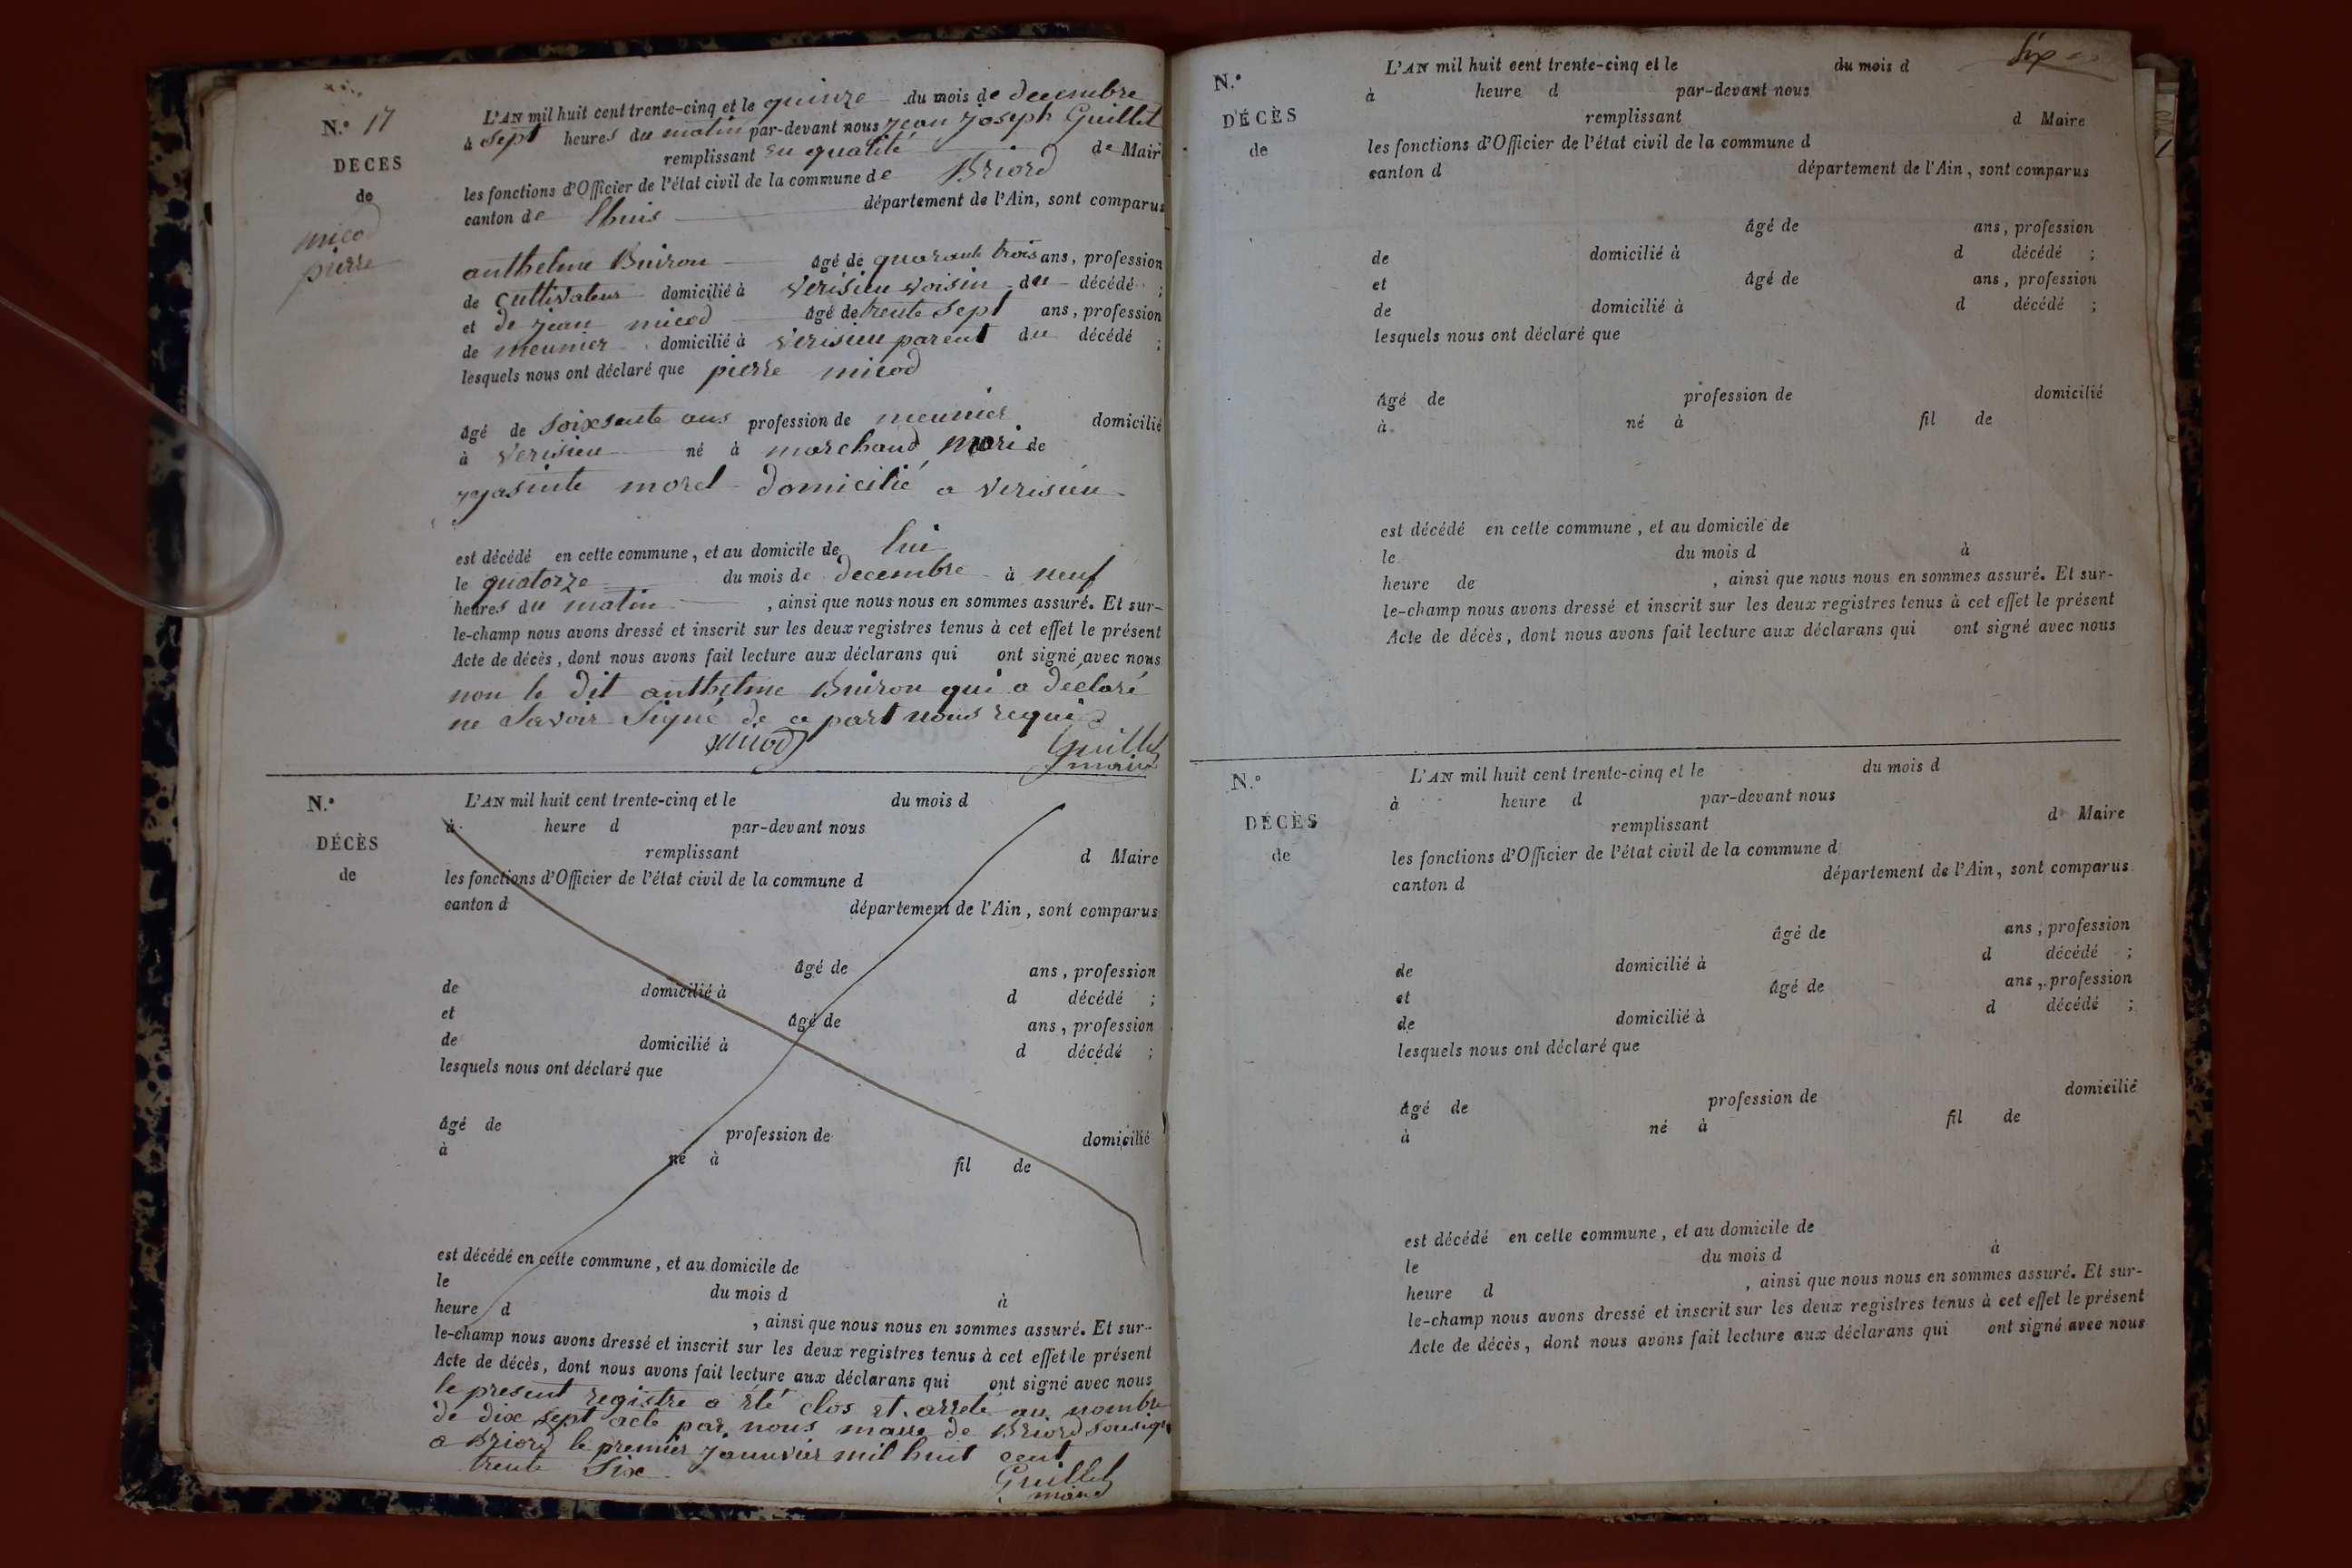 N.° 17
DECES
de
micod
pierre
L'AN mil huit cent trente-cinq et le quinze du mois de decembre
à sept heures du matin par-devant nous jean joseph Guillet
remplissant en qualité de Mair
les fonctions d'Officier de l'état civil de la commune de Briord
canton de lhuis département de l'Ain, sont comparus
anthelme Buiron âgé de quarante trois ans, profession
de cultivateur domicilié à Verisieu voisin du décédé ;
et de jean micod âgé de trente sept ans, profession
de meunier domicilié à verisieu parent du décédé ;
lesquels nous ont déclaré que pierre micod
âgé de soixsante ans profession de meunier domicilié
à Verisieu né à marchand mari de
yasinte morel domicilié a verisieu
est décédé en cette commune, et au domicile de lui
le quatorze du mois de decembre à neuf
heures du matin , ainsi que nous nous en sommes assuré. Et sur-
le-champ nous avons dressé et inscrit sur les deux registres tenus à cet effet le présent
Acte de décès, dont nous avons fait lecture aux déclarans qui ont signé avec nous
non le dit anthelme Buiron qui a déclaré
ne savoir signé de ce part nous requis
micod Guillet
maire
N.°
DÉCÈS
de
L'AN mil huit cent trente-cinq et le du mois d
à heure d par-devant nous
remplissant d Maire
les fonctions d'Officier de l'état civil de la commune d
canton d département de l'Ain, sont comparus
âgé de ans, profession
de domicilié à d décédé ;
et âgé de ans, profession
de domicilié à d décédé ;
lesquels nous ont déclaré que
âgé de profession de domicilié
à né à fil de
est décédé en cette commune, et au domicile de
le du mois d à
heure d , ainsi que nous nous en sommes assuré. Et sur-
le-champ nous avons dressé et inscrit sur les deux registres tenus à cet effet le présent
Acte de décès, dont nous avons fait lecture aux déclarans qui ont signé avec nous
le present registre a été clos et arreté au nombre
de dix sept acte par nous maire de Briord sousigné
a Briord le premier janvier mil huit cent
trente six
Guillet
maire
Six
N.°
DÉCÈS
de
L'AN mil huit cent trente-cinq et le du mois d
à heure d par-devant nous
remplissant d Maire
les fonctions d'Officier de l'état civil de la commune d
canton d département de l'Ain, sont comparus
âgé de ans, profession
de domicilié à d décédé ;
et âgé de ans, profession
de domicilié à d décédé ;
lesquels nous ont déclaré que
âgé de profession de domicilié
à né à fil de
est décédé en cette commune, et au domicile de
le du mois d à
heure de , ainsi que nous nous en sommes assuré. Et sur-
le-champ nous avons dressé et inscrit sur les deux registres tenus à cet effet le présent
Acte de décès, dont nous avons fait lecture aux déclarans qui ont signé avec nous
N.°
DÉCÈS
de
L'AN mil huit cent trente-cinq et le du mois d
à heure d par-devant nous
remplissant d Maire
les fonctions d'Officier de l'état civil de la commune d
canton d département de l'Ain, sont comparus
âgé de ans, profession
de domicilié à d décédé ;
et âgé de ans, profession
de domicilié à d décédé ;
lesquels nous ont déclaré que
âgé de profession de domicilié
à né à fil de
est décédé en cette commune, et au domicile de
le du mois d à
heure d , ainsi que nous nous en sommes assuré. Et sur-
le-champ nous avons dressé et inscrit sur les deux registres tenus à cet effet le présent
Acte de décès, dont nous avons fait lecture aux déclarans qui ont signé avec nous